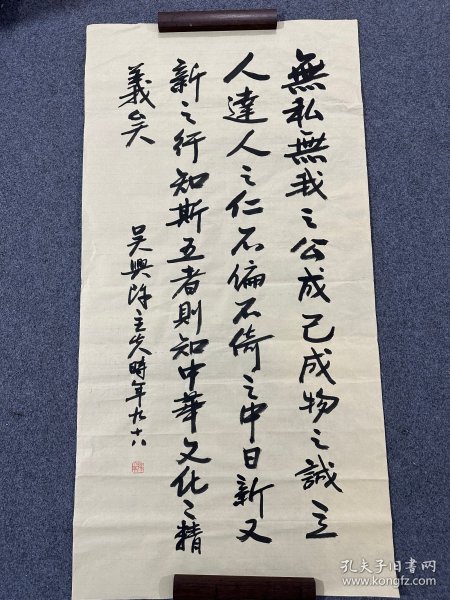 無私無我之公成己成物之誠立
人達人之仁不偏不倚之中日新又
新之行知斯五者則知中華文化之精
義矣
吳興陳立夫時年九十八
孔夫子旧书网
www.kongfz.com